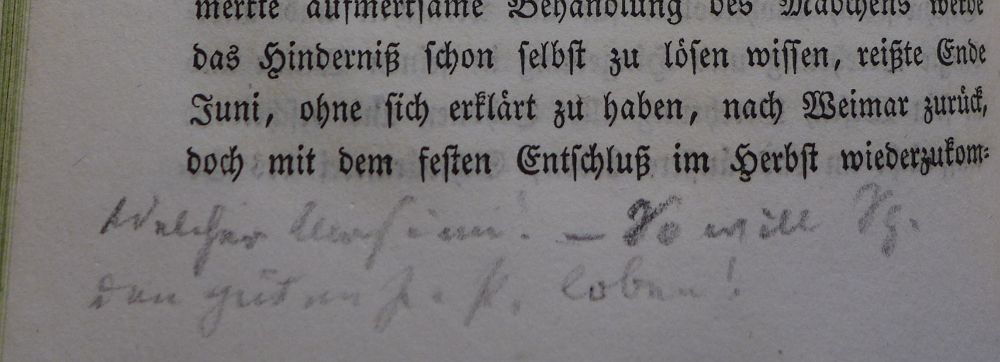 merkte aufmerksame Behandlung des Mädchens werde
das Hinderniß schon selbst zu lösen wissen, reißte Ende
Juni, ohne sich erklärt zu haben, nach Weimar zurück,
doch mit dem festen Entschluß im Herbst wiederzukom-
Welcher Unsinn! – So will Sch.
den guten loben!